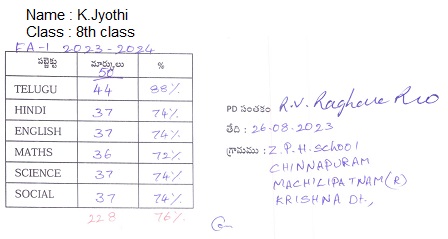 Name : K.Jyothi
Class : 8th class
FA-I 2023-2024
సబ్జెక్టు మార్కులు %
50
TELUGU 44 88%
HINDI 37 74%
ENGLISH 37 74%
MATHS 36 72%
SCIENCE 37 74%
SOCIAL 37 74%
228 76%
PD సంతకం R.V. Raghava Rao
తేది : 26-08-2023
గ్రామము : Z.P.H. School
CHINNAPURAM
MACHILIPATNAM (R)
KRISHNA Dt.,